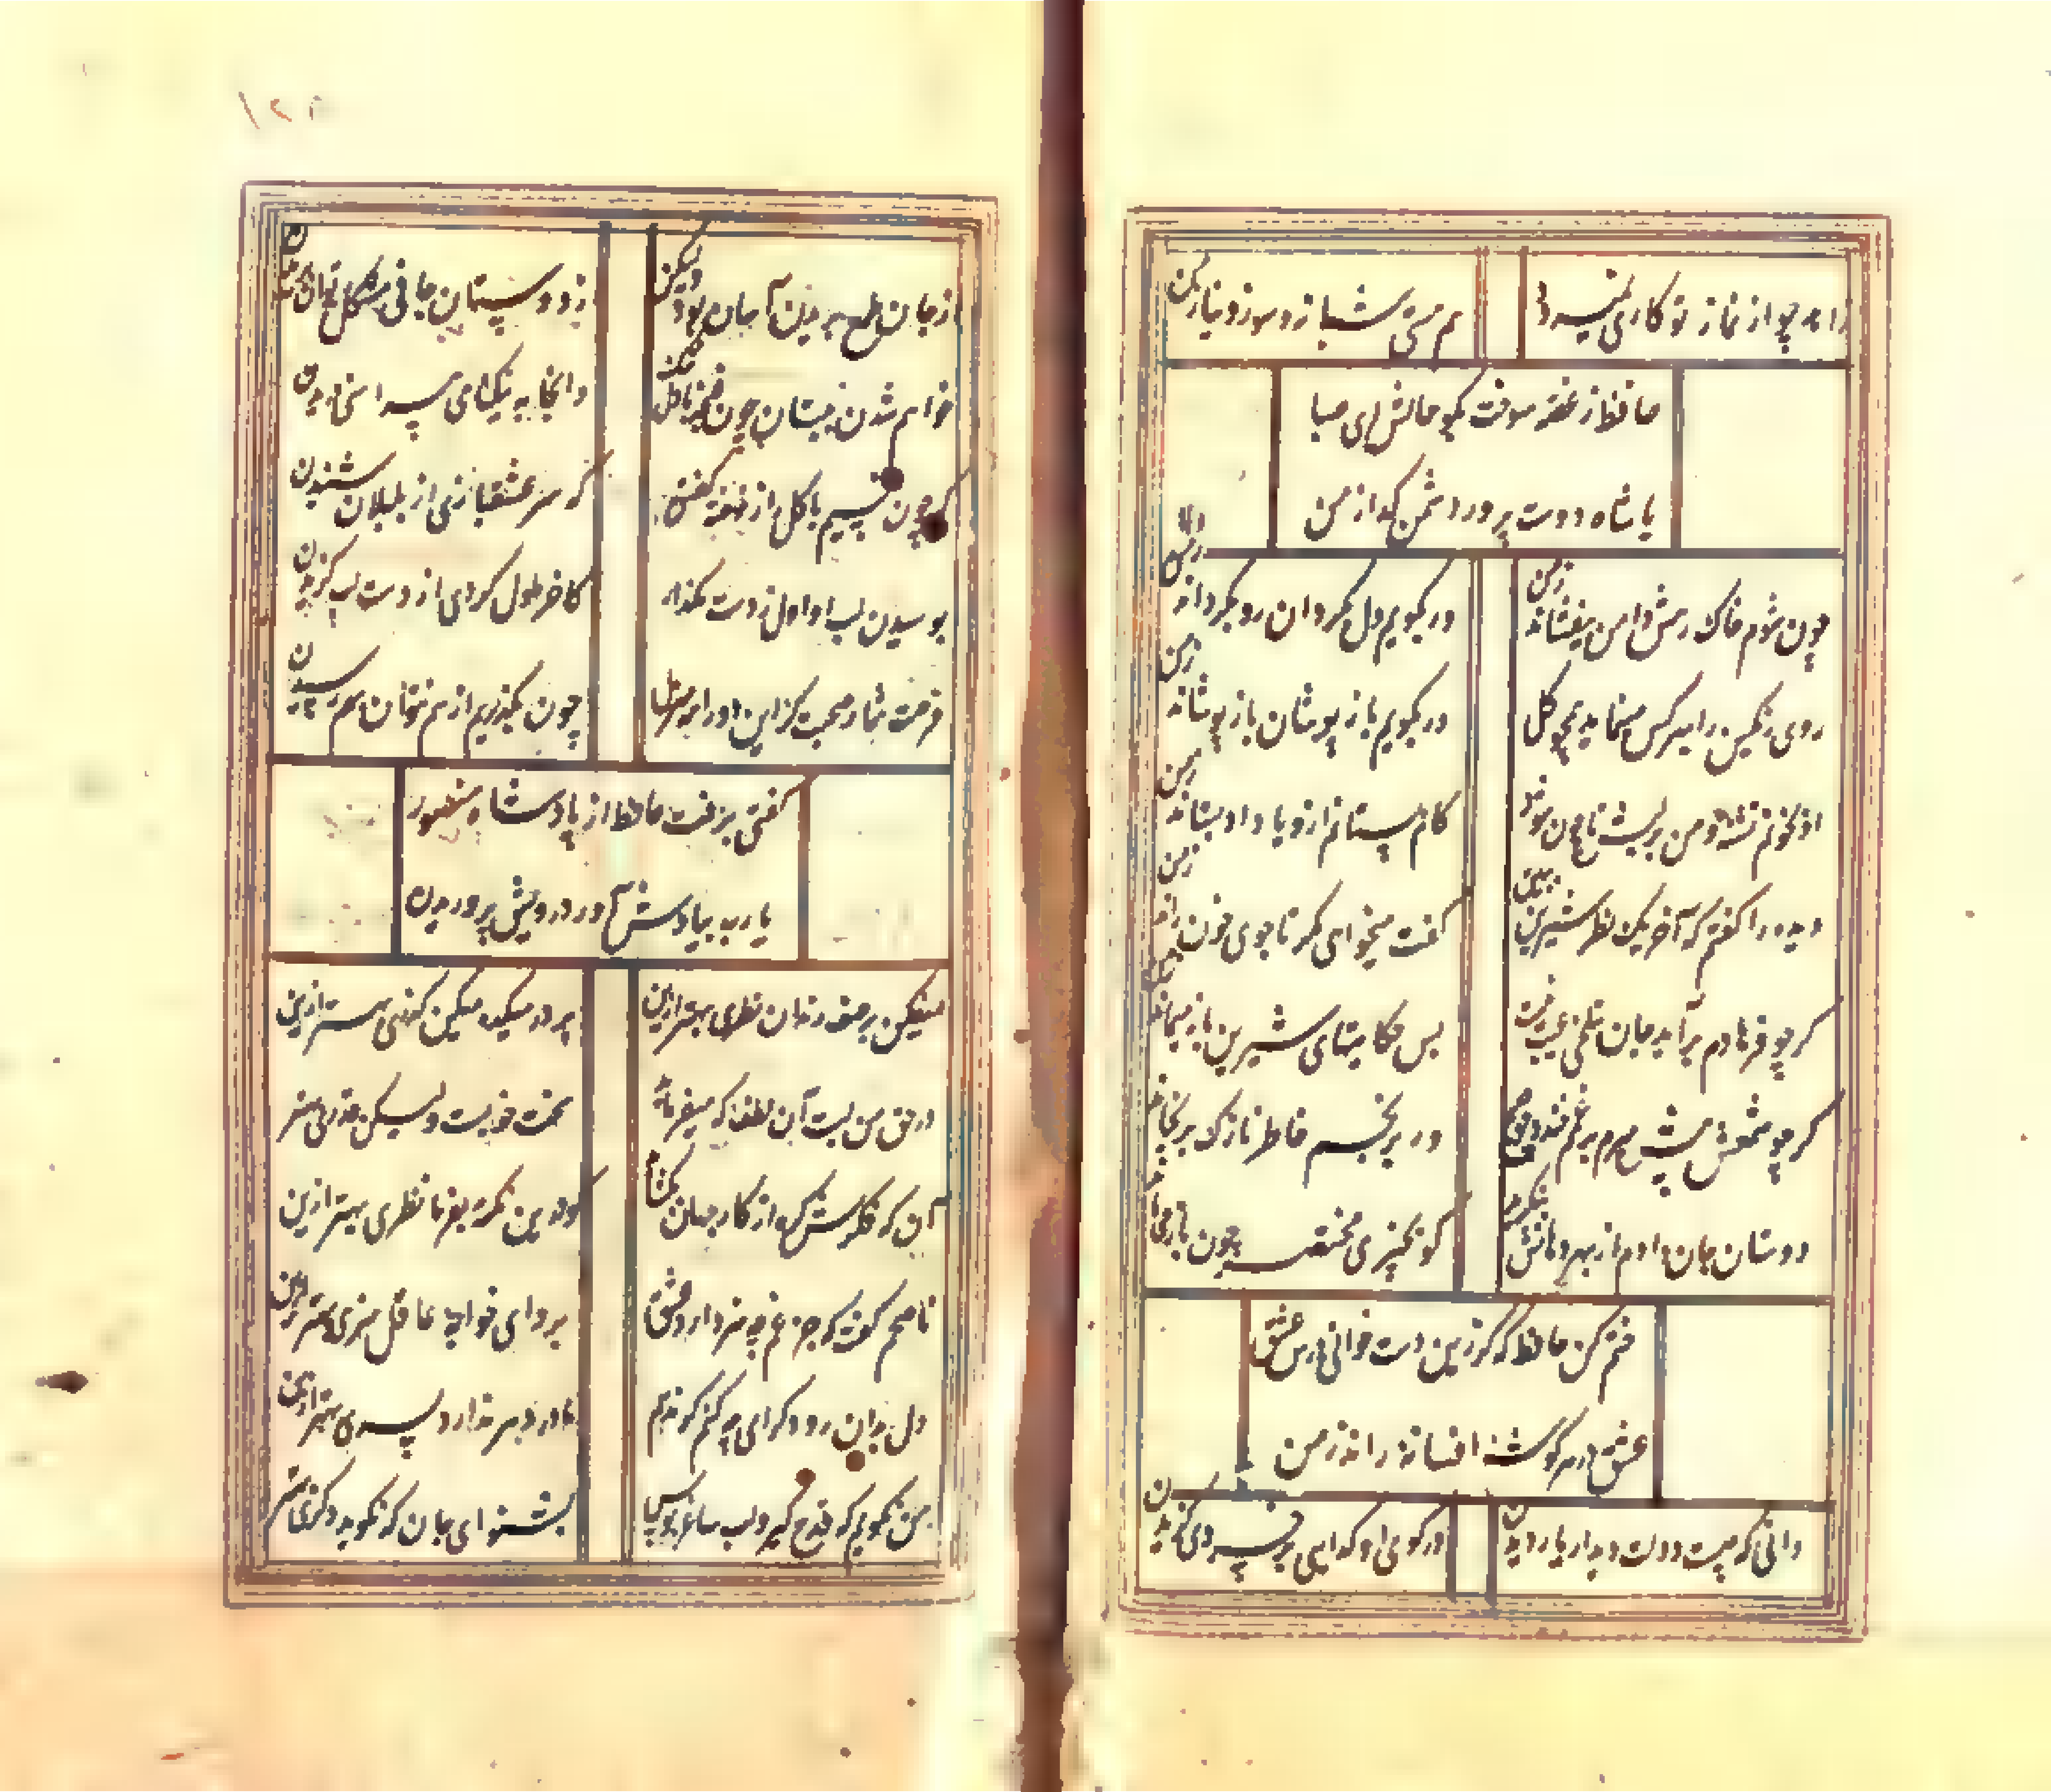 زاهد چو از نماز تو کاری نمیرود
هم مستی شبانه و سوز و نیاز من
حافظ ز غصه سوخت بگو حالش ای صبا
با شاه دوست پرور دشمن گداز من
چون شوم خاک رهش دامن بیفشاند ز من
ور بگویم دل بگردان رو بگرداند ز من
روی رنگین را بهر کس مینماید همچو گل
ور بگویم باز پوشان باز پوشاند ز من
او بخونم تشنه و من بر لبش تا چون شود
کام بستانم ازو یا داد بستاند ز من
دیده را گفتم که آخر یک نظر شیرین ببین
گفت میخواهی مگر تا جوی خون راند ز من
گر چو فرهادم برآید جان بتلخی عیب نیست
بس حکایتهای شیرین باز میماند ز من
گر چو شمعش پیش میرم بر غمم خندد چو صبح
ور برنجم خاطر نازک برنجاند ز من
دوستان جان داده‌ام از بهر دهانش بنگرید
کو بچیزی مختصر چون باز میماند
ختم کن حافظ که گر زین دست خوانی درس عشق
عشق در هر گوشه افسانه راند ز من
دانی که چیست دولت دیدار یار دیدن
در کوی او گدایی بر خسروی گزیدن
از جان طمع بریدن آسان بود ولیکن
از دوستان جانی مشکل توان بریدن
خواهم شدن ببستان چون غنچه با دل تنگ
وانجا به نیکنامی پیراهنی دریدن
گه چون نسیم با گل از نهفته گفتن
گه سر عشقبازی از بلبلان شنیدن
بوسیدن لب او اول ز دست مگذار
کاخر ملول گردی از دست لب گزیدن
فرصت شمار صحبت کز این دو راهه
چون بگذریم از هم نتوان بهم رسیدن
گفتی برفت حافظ از یاد شاه منصور
یا رب بیادش آور درویش پروریدن
میفکن بر صف رندان نظری بهتر ازین
بر در میکده میکن گذری بهتر ازین
در حق من لبت آن لطف که میفرماید
سخت خوبست ولیکن قدری بهتر
آن که فکرش گره از کار جهان بگشاید
گو درین نکته بفرما نظری بهتر ازین
ناصحم گفت که جز غم چه هنر دارد عشق
برو ای خواجه عاقل هنری بهتر ازین
دل بدان رود گرامی چه کنم گر ندهم
مادر دهر ندارد پسری بهتر ازین
من نگویم که قدح گیر و لب ساغر بوس
بشنو ای جان که نگوید دگری بهتر